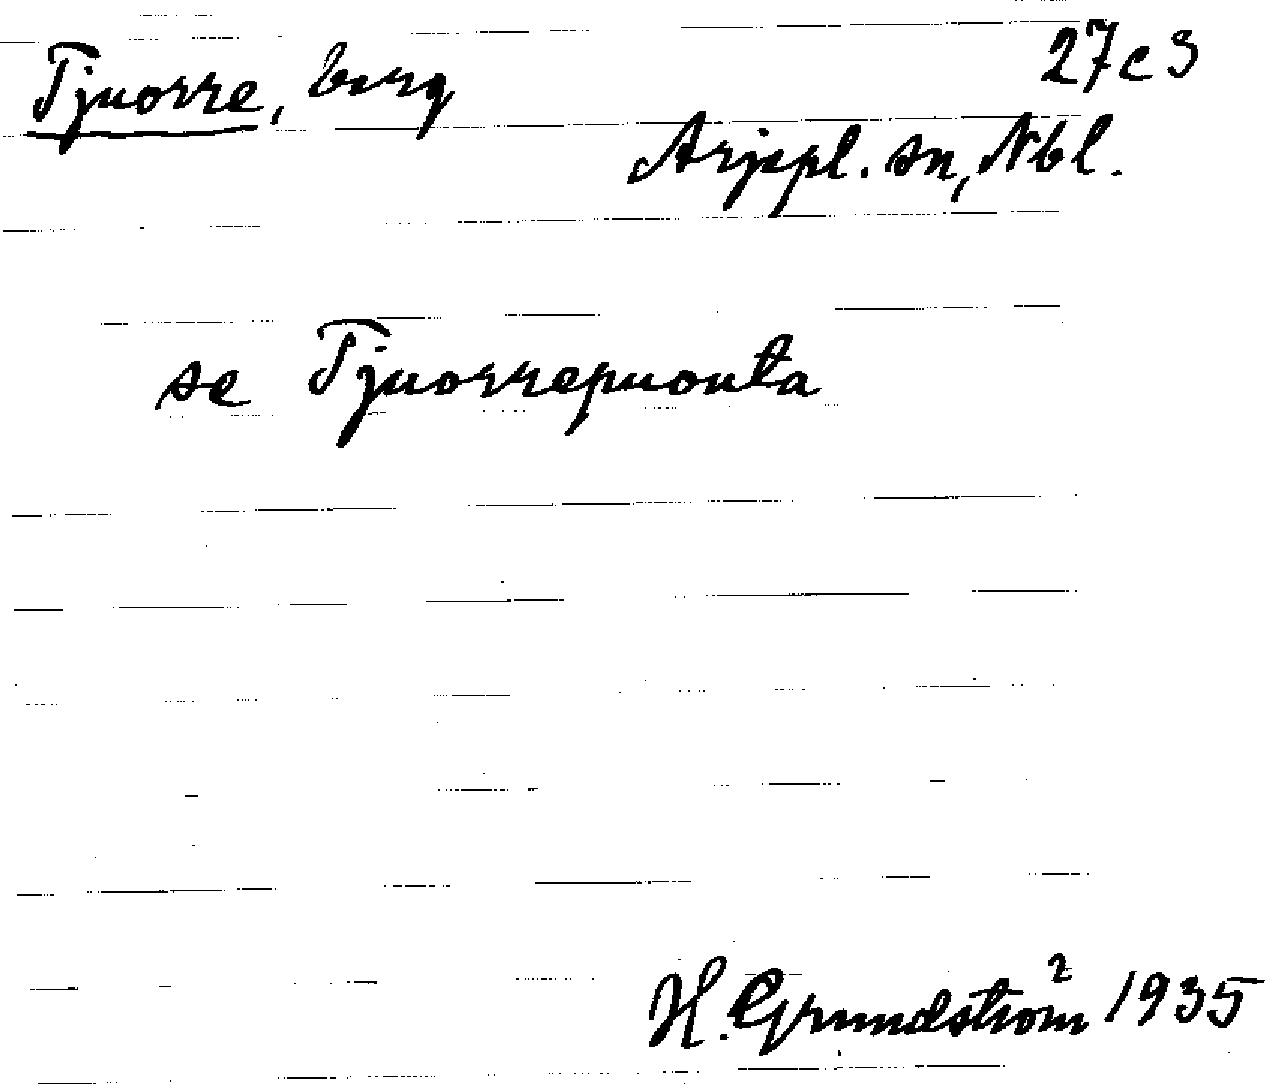 Tjuorre, berg 27c3
Arjepl. sn, Nbl.
se Tjuorrepuouta
H. Grundström 1935